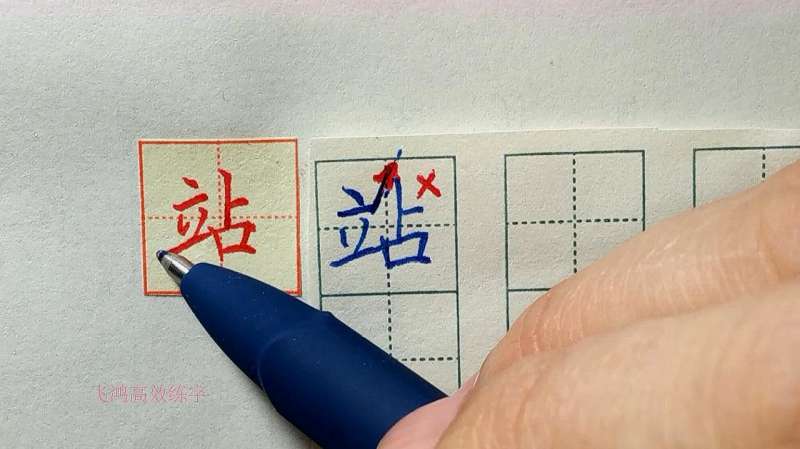 站 站 ×
飞鸿高效练字